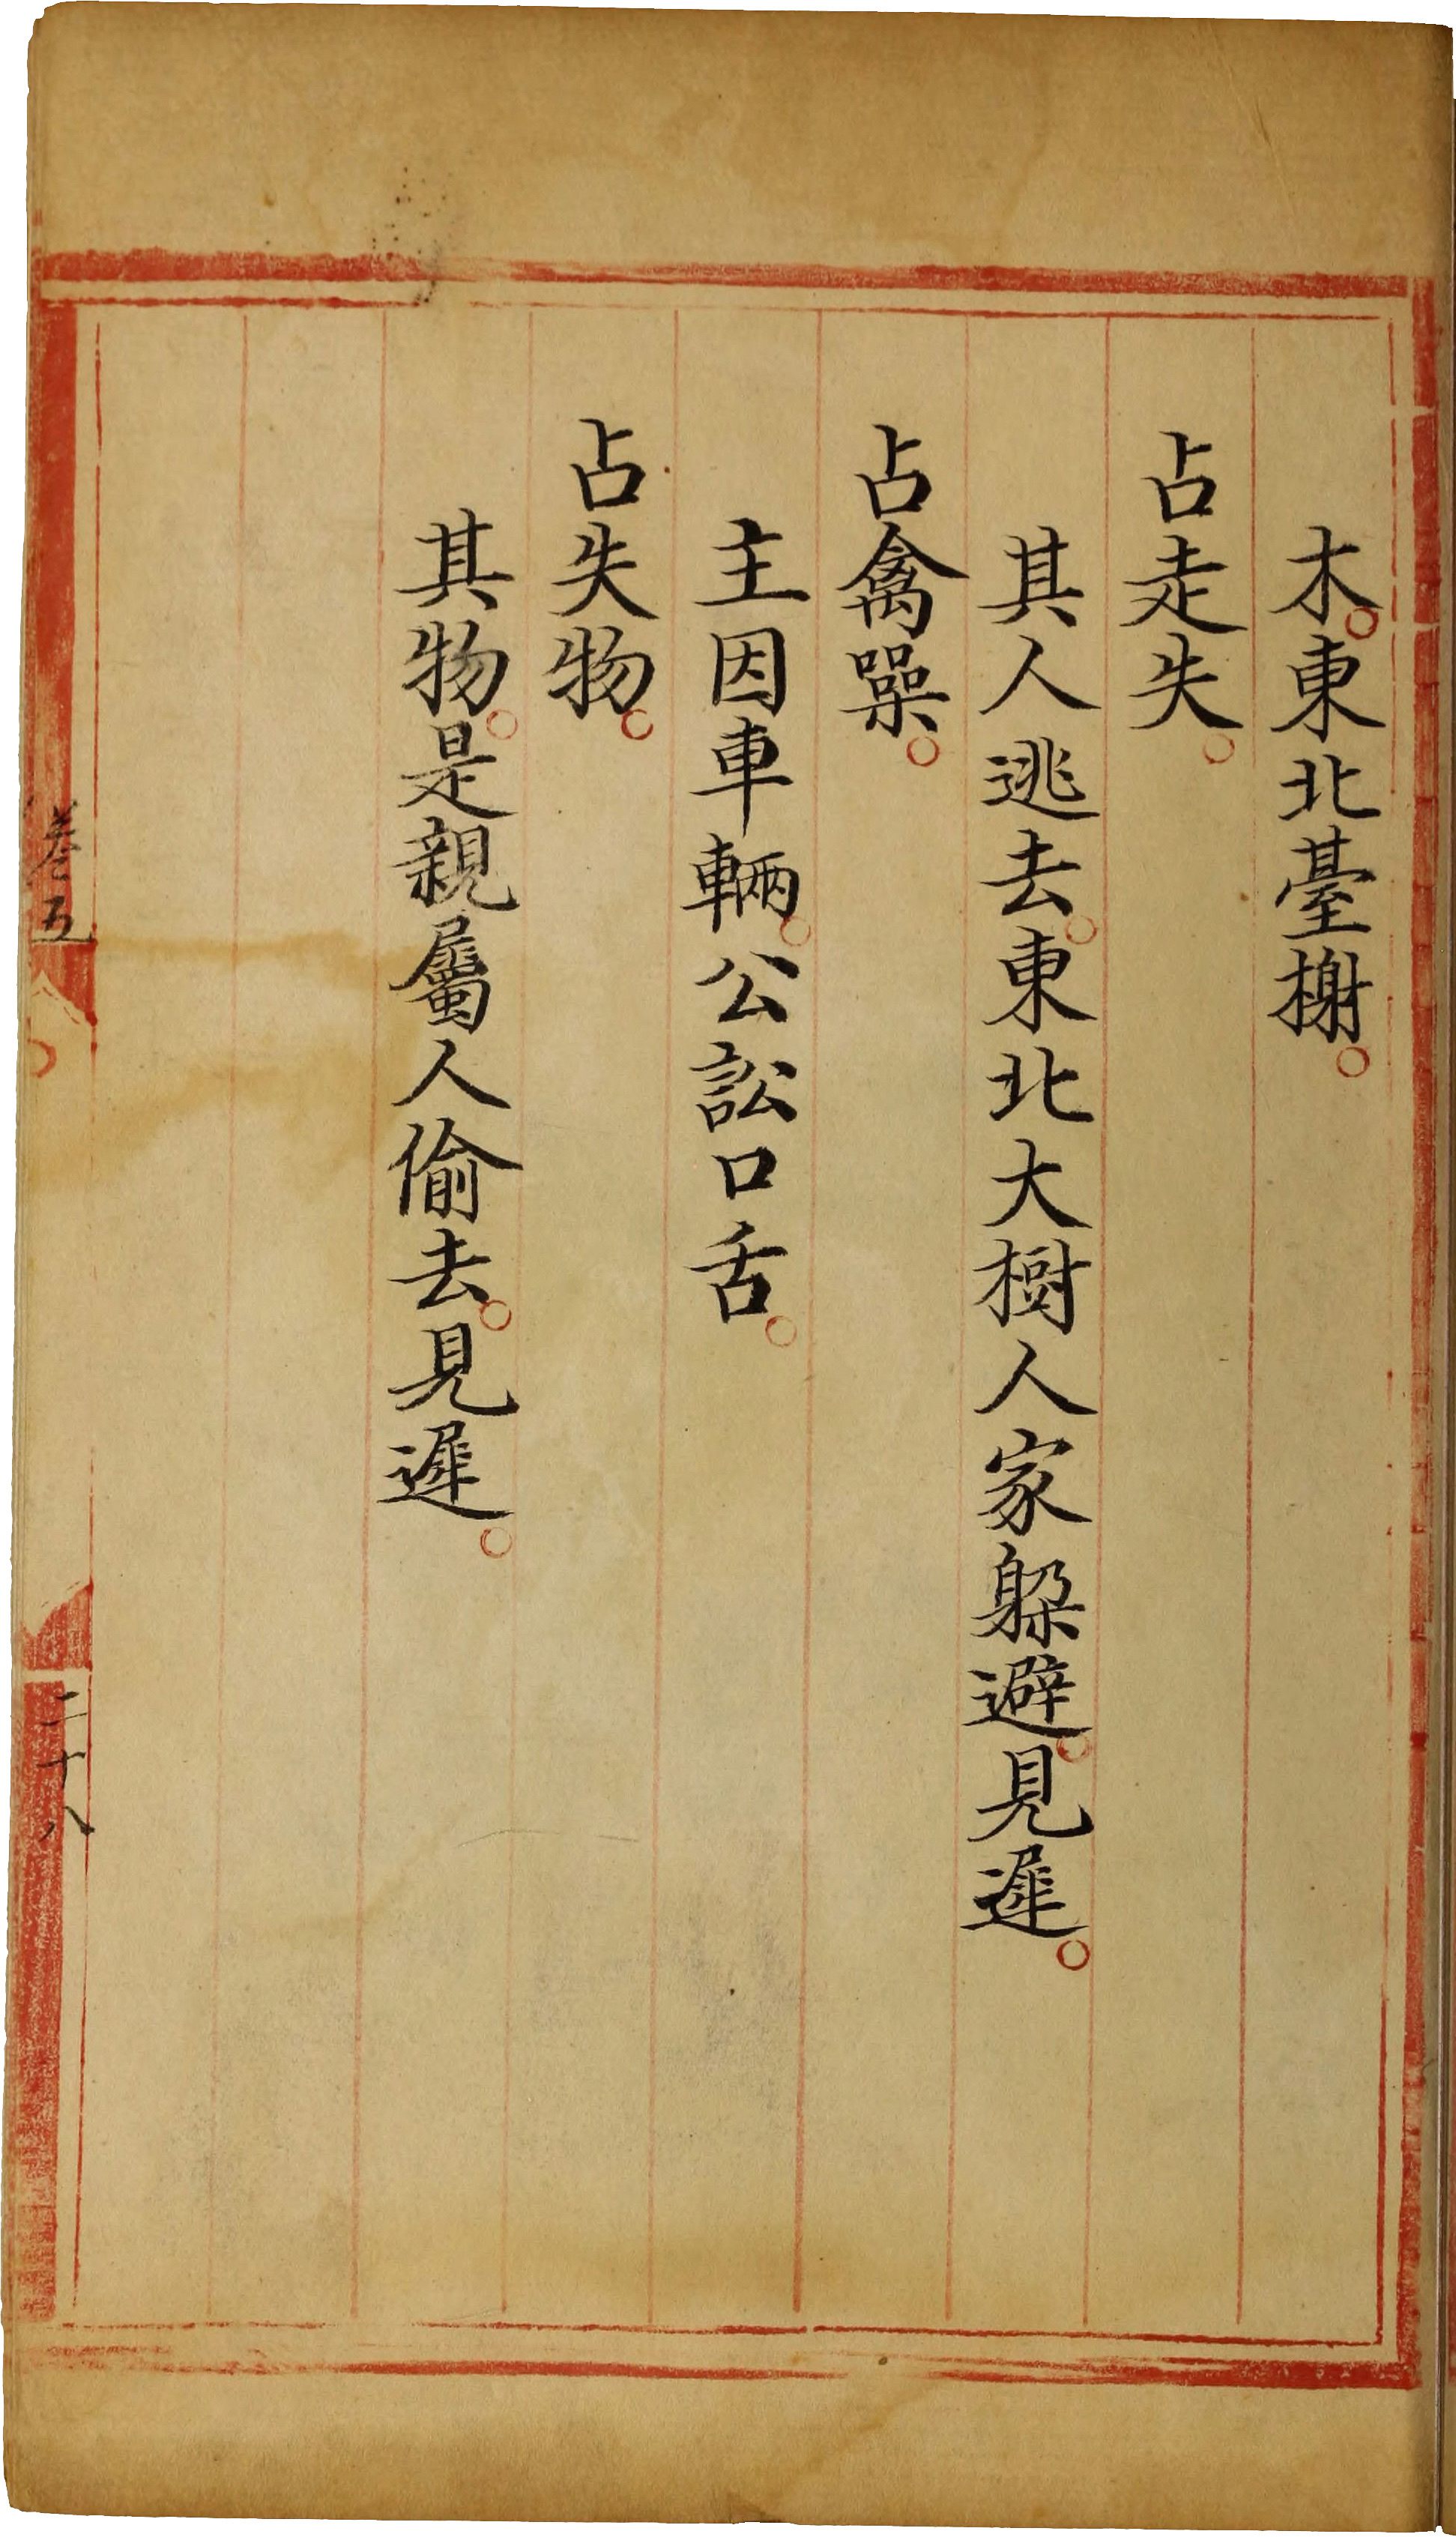 木。東北臺榭。
占走失。
其人逃去。東北大樹人家躲避。見遲。
占禽噪。
主因車輛。公訟口舌。
占失物。
其物。是親屬人偷去。見遲。
卷五
二十八